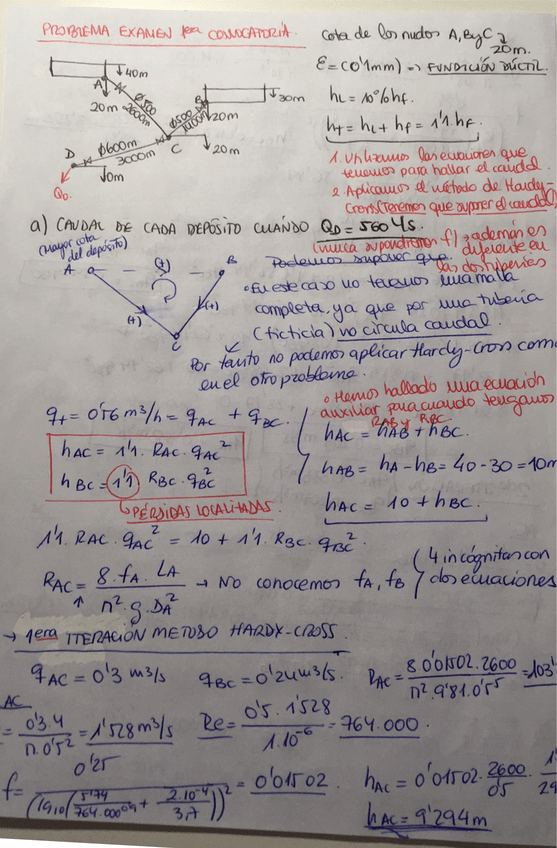 PROBLEMA EXAMEN 1era CONVOCATORIA.
cota de los nudos A, B y C
20m.
ε = (0'1mm) → FUNDICIÓN DÚCTIL.
40m
A
20m
Ø500
2600m
B
30m
20m
Ø500
C
20m
D
Ø600m
3000m
0m
QD
hL = 10% hf.
ht = hL + hf = 1'1 hf.
1. Utilizamos las ecuaciones que
tenemos para hallar el caudal.
2 Aplicamos el método de Hardy-
Cross (tenemos que suponer el caudal)
(nunca supondremos f), además es
diferente en
las dos tuberías
a) CAUDAL DE CADA DEPÓSITO CUANDO QD = 560 l/s.
(Mayor cota
del depósito)
A
(+)
B
(+)
(+)
C
Podemos suponer que
• En este caso no tenemos una malla
completa, ya que por una tubería
(ficticia) no circula caudal.
Por tanto no podemos aplicar Hardy-Cross como
en el otro problema.
qt = 0'56 m³/h = qAC + qBC.
hAC = 1'1. RAC. qAC²
hBC = 1'1 RBC. qBC²
PÉRDIDAS LOCALIZADAS.
• Hemos hallado una ecuación
auxiliar para cuando tengamos
RAB y RBC.
hAC = hAB + hBC.
hAB = hA - hB = 40 - 30 = 10m
hAC = 10 + hBC.
1'1. RAC. qAC² = 10 + 1'1. RBC. qBC²
RAC = 8. fA. LA / π². g. DA² → No conocemos fA, fB
4 incógnitas con
dos ecuaciones
→ 1era ITERACIÓN METODO HARDY-CROSS.
qAC = 0'3 m³/s qBC = 0'24 m³/s. RAC = 8 0'01502. 2600 / π². 9'81. 0'5⁵ = 103'
AC
= 0'3.4 / π. 0'5² = 1'528 m³/s Re = 0'5. 1'528 / 1.10⁻⁶ = 764.000.
f = 0'25 / (log10(5'74 / 764.000⁰'⁹ + 2.10⁻⁴ / 3,7))² = 0'01502
hAC = 0'01502. 2600 / 05
hAC = 9'294m